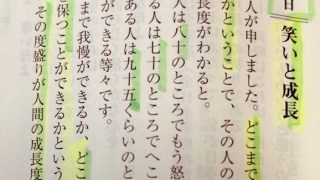 日 笑いと成長
人が申しました。どこまで
かということで、その人の
長度がわかると。
人は八十のところでもう怒
人は七十のところでへこ
ある人は九十五くらいのと
ができる等々です。
まで我慢ができるか、どこ
保つことができるかという
その度盛りが人間の成長度